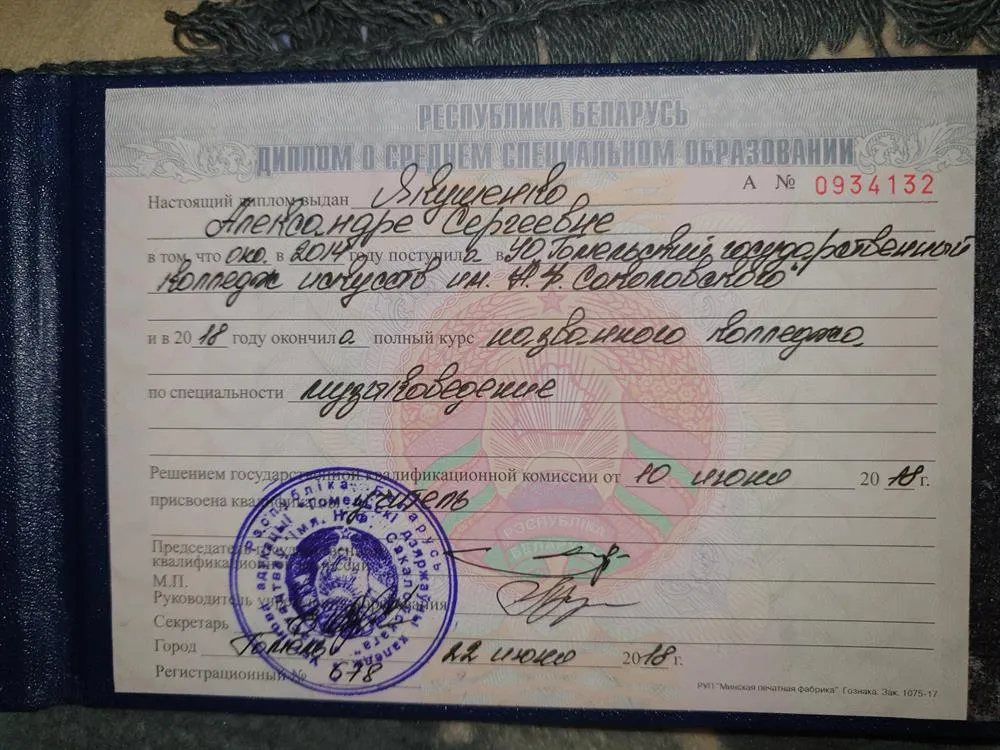 РЕСПУБЛИКА БЕЛАРУСЬ
ДИПЛОМ О СРЕДНЕМ СПЕЦИАЛЬНОМ ОБРАЗОВАНИИ
А № 0934132
Настоящий диплом выдан Якушенко
Александре Сергеевне
в том, что она в 2014 году поступила в УО "Гомельский государственный
колледж искусств им. Н.Ф. Соколовского"
и в 2018 году окончила полный курс названного колледжа
по специальности музыковедение
Решением государственной квалификационной комиссии от 10 июня 2018 г.
присвоена квалификация учитель
Председатель государственной
квалификационной комиссии
М.П.
Руководитель учреждения образования
Секретарь
Город Гомель 22 июня 2018 г.
Регистрационный № 678
РУП "Минская печатная фабрика" Гознака. Зак. 1075-17
РЭСПУБЛІКА
БЕЛАРУСЬ